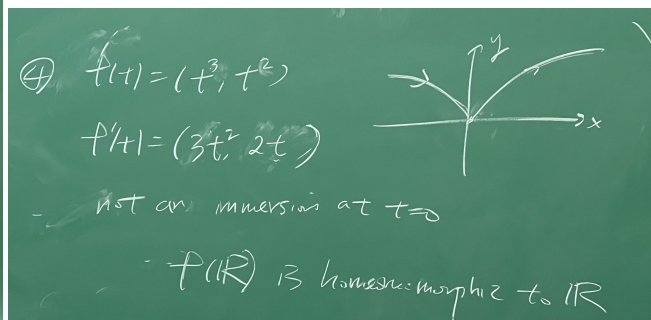 ④ f(t) = (t³, t²)
f'(t) = (3t², 2t)
y
x
not an immersion at t=0
f(ℝ) is homeomorphic to ℝ